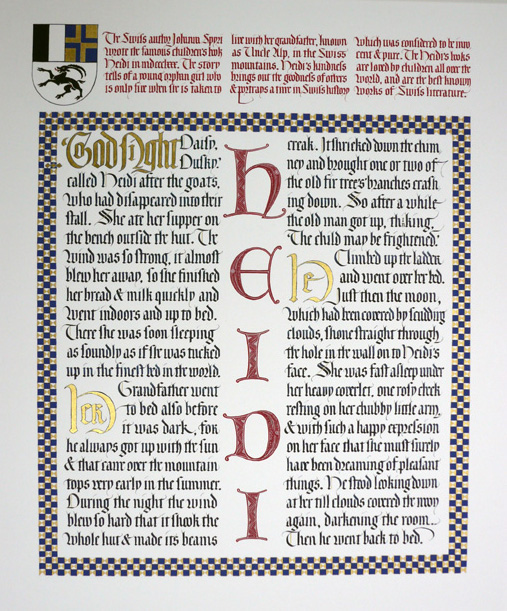 The Swiss author Johanna Spyri
wrote the famous children's book
Heidi in The story
tells of a young orphan girl who
is only five when she is taken to
live with her grandfather, known
as Uncle Alp, in the Swiss
mountains. Heidi's kindness
brings out the goodness of others
& portrays a time in Swiss history
which was considered to be inno
cent & pure. The Heidi's books
are loved by children all over the
world, and are the best known
works of Swiss literature.
"Good Night Daisy,
Dusky,"
called Heidi after the goats,
who had disappeared into their
stall. She ate her supper on
the bench outside the hut. The
wind was so strong, it almost
blew her away, so she finished
her bread & milk quickly and
went indoors and up to bed.
There she was soon sleeping
as soundly as if she was tucked
up in the finest bed in the world.
Her Grandfather went
to bed also before
it was dark, for
he always got up with the sun
& that came over the mountain
tops very early in the summer.
During the night the wind
blew so hard that it shook the
whole hut & made its beams
HEIDI
creak. It shrieked down the chim
ney and brought one or two of
the old fir tree's branches crash
ing down. So after a while
the old man got up, thinking,
"The child may be frightened."
He Climbed up the ladder
and went over her bed.
Just then the moon,
which had been covered by scudding
clouds, shone straight through
the hole in the wall on to Heidi's
face. She was fast asleep under
her heavy coverlet, one rosy cheek
resting on her chubby little arm,
& with such a happy expression
on her face that she must surely
have been dreaming of pleasant
things. He stood looking down
at her till clouds covered the moon
again, darkening the room..
Then he went back to bed.